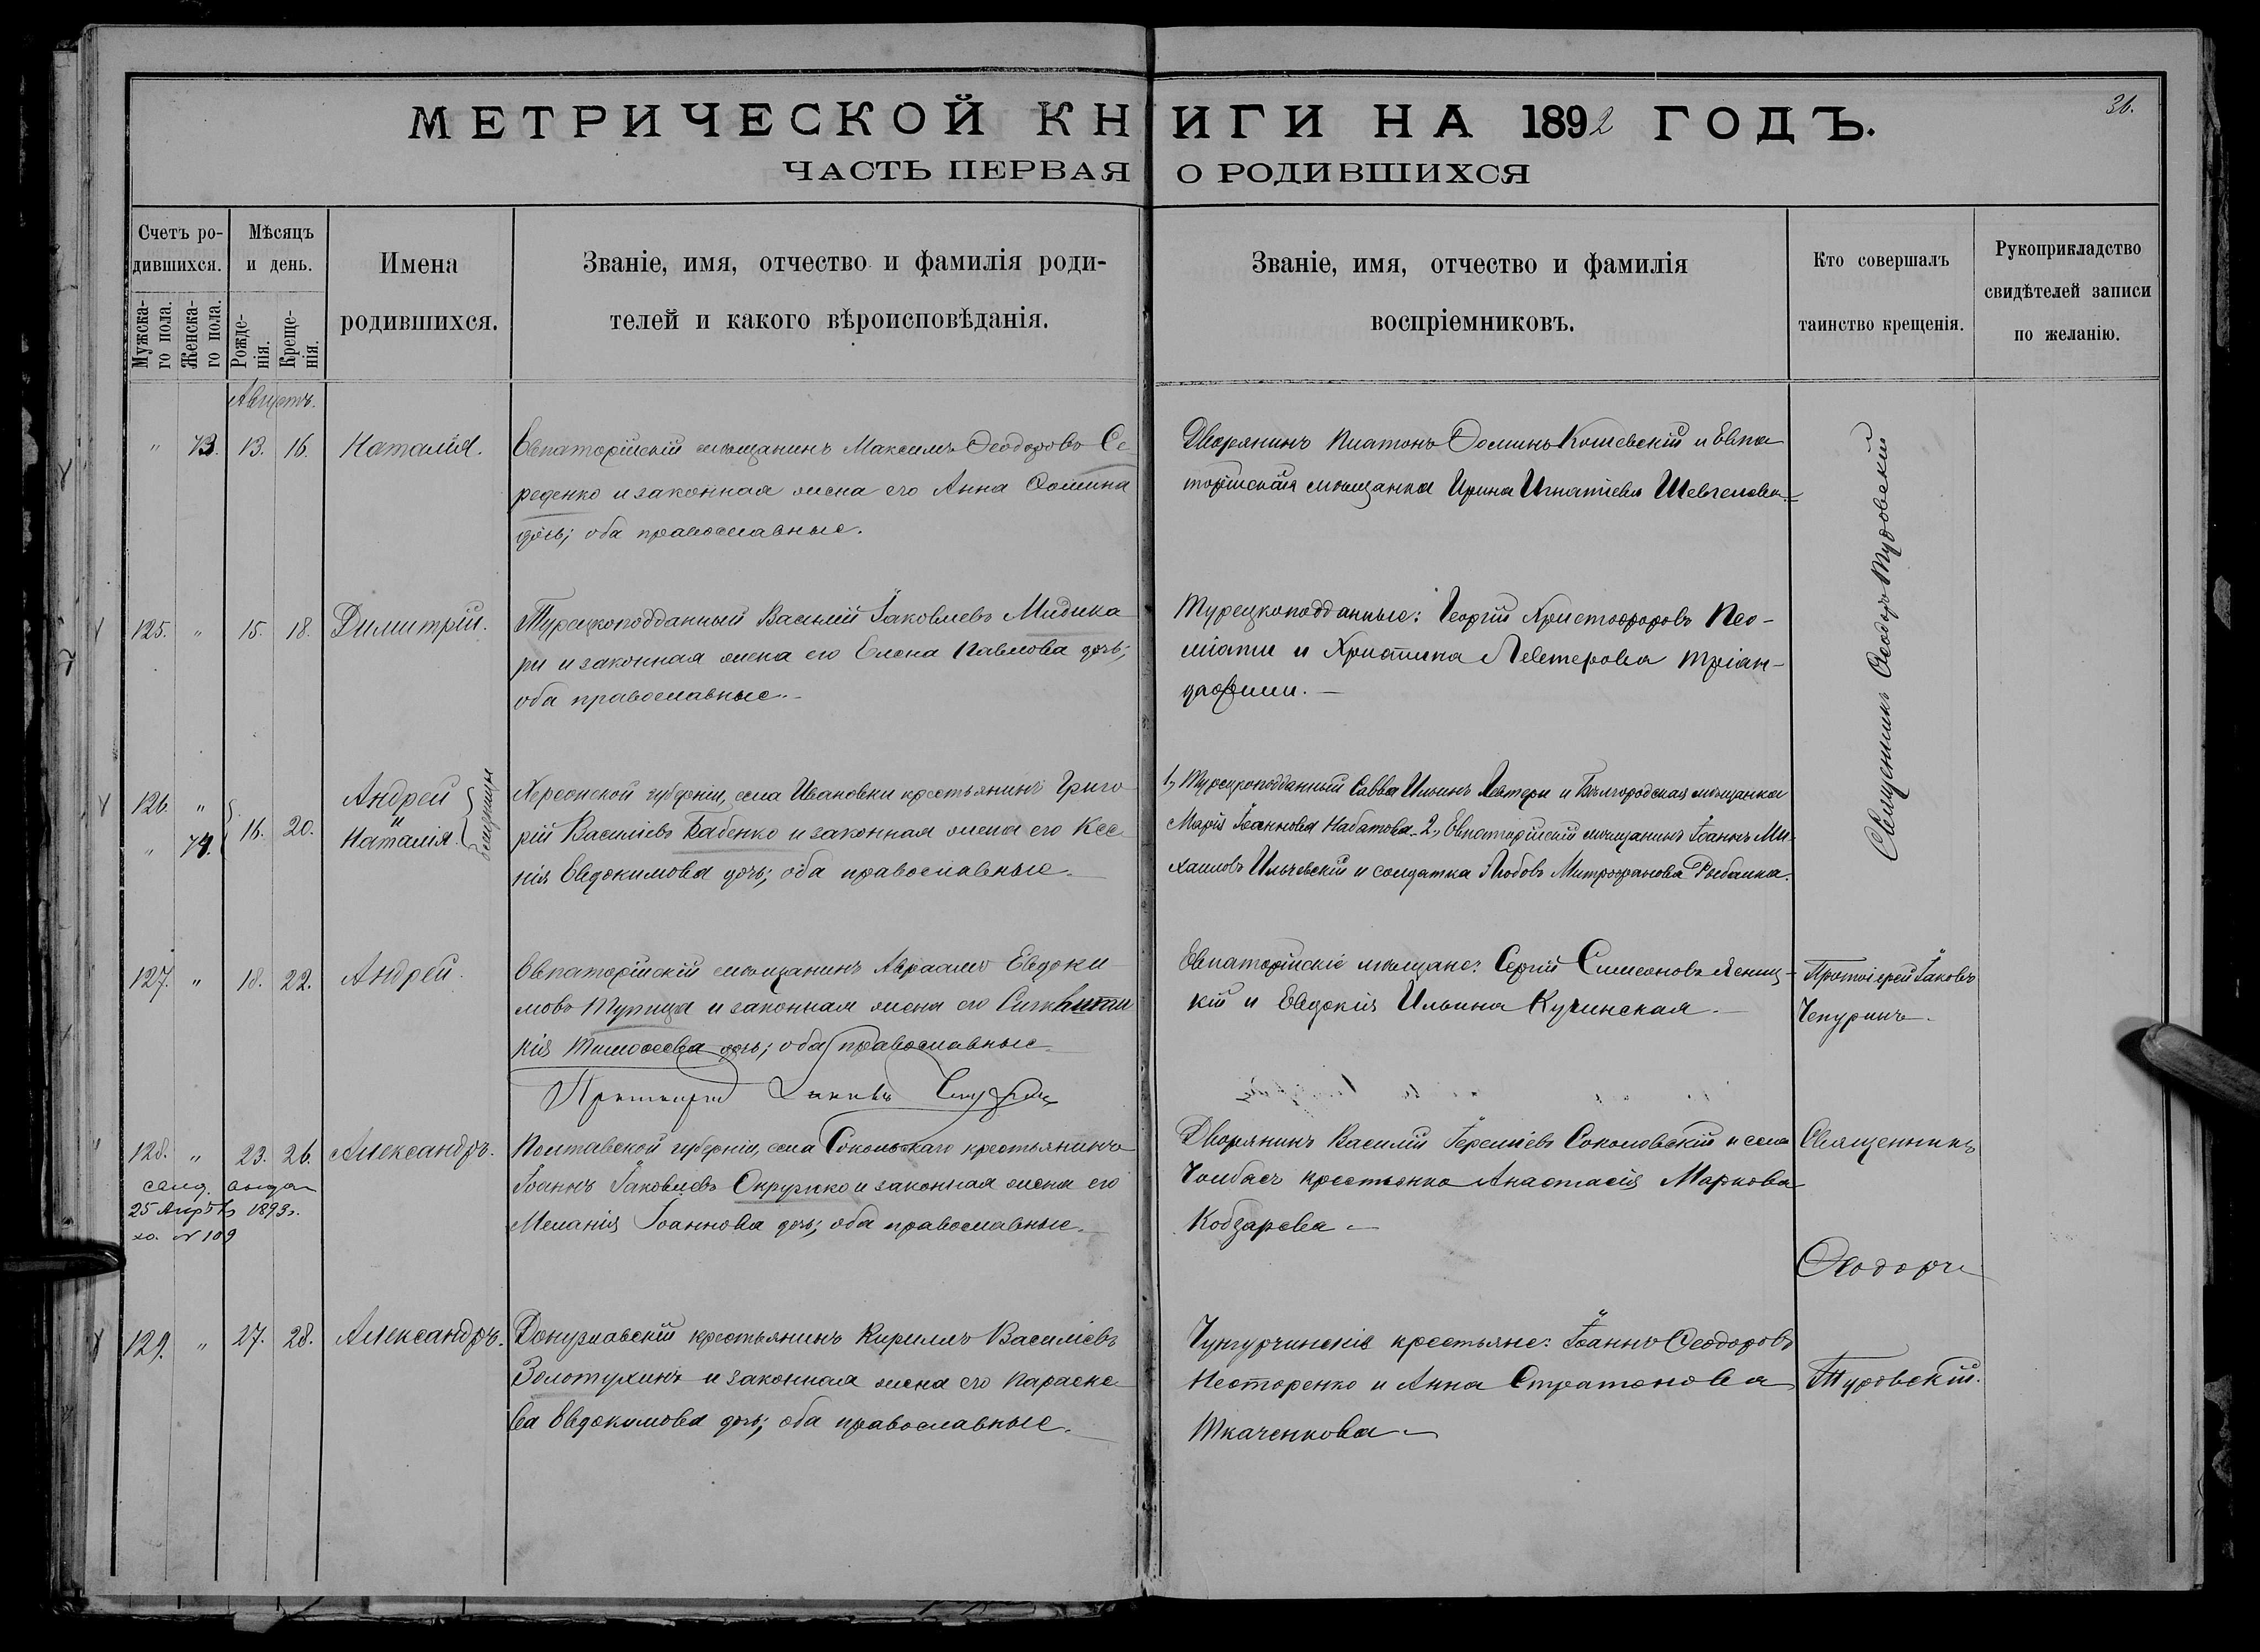 МЕТРИЧЕСКОЙ КНИГИ НА 1892 ГОДЪ.
36.
ЧАСТЬ ПЕРВАЯ О РОДИВШИХСЯ
Счетъ ро-
дившихся.
Мужска-
го пола.
Женска-
го пола.
Мѣсяцъ
и день.
Рожде-
нія.
Креще-
нія.
Имена
родившихся.
Званіе, имя, отчество и фамилія роди-
телей и какого вѣроисповѣданія.
Званіе, имя, отчество и фамилія
воспріемниковъ.
Кто совершалъ
таинство крещенія.
Рукоприкладство
свидѣтелей записи
по желанію.
Августъ.
" 73. 13. 16. Наталія.
Евпаторійскій мѣщанинъ Максимъ Ѳеодоровъ Се
реденко и законная жена его Анна Ѳомина
дочь; оба православные.
Дворянинъ Платонъ Ѳоминъ Кошевскій и Евпа
торійская мѣщанка Ирина Игнатіева
Священникъ Ѳеодоръ Туровскій
125. " 15. 18. Димитрій.
Турецкоподданный Василій Іаковлевъ Мидика
ри и законная жена его Елена Павлова дочь;
оба православные.-
Турецкоподданные: Георгій Христофоровъ Пео-
міати и Христина Левтерова Тріан-
дафили.-
126 "
" 74. 16. 20.
Андрей
и
Наталія. близнецы
Херсонской губерніи, села Ивановки крестьянинъ Григо
рій Василіевъ Бабенко и законная жена его Ксе
нія Евдокимова дочь; оба православные.-
1, Турецкоподданный Савва Ильинъ Левтери и Бѣлгородская мѣщанка
Марія Іоаннова Набатова. 2, Евпаторійскій мѣщанинъ Іоаннъ Ми-
хаиловъ Ильчевскій и солдатка Любовь Митрофанова Рыбалка.
127. " 18. 22. Андрей.
Евпаторійскій мѣщанинъ Авраамъ Евдоки
мовъ Тупица и законная жена его
кія Тимоѳеева дочь; оба православные.-
Протоіерей Іаковъ Чепуринъ
Евпаторійскіе мѣщане: Сергій Симеоновъ Ясниц-
кій и Евдокія Ильина Кучинская.-
Протоіерей Іаковъ
Чепуринъ.
128. " 23. 26. Александръ.
выдан
25 Апрѣ 1893 г.
№ 109
Полтавской губерніи, села Сокольскаго крестьянинъ
Іоаннъ Іаковлевъ Окружко и законная жена его
Меланія Іоаннова дочь; оба православные.-
Дворянинъ Василій Іереміевъ Соколовскій и села
Чолбасъ крестьянка Анастасія Маркова
Кобзарева.-
Священникъ
Ѳеодоръ
129. " 27. 28. Александръ.
Донузлавскій крестьянинъ Кириллъ Василіевъ
Золотухинъ и законная жена его Параске
ва Евдокимова дочь; оба православные.-
Чунгурчинскіе крестьяне: Іоаннъ Ѳеодоровъ
Несторенко и Анна Стратонова
Ткаченкова.-
Туровскій.